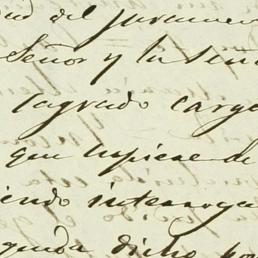 dad del juramen
Señor y la Seña
sagrado cargo
que supiese de
iendo interroga
gunda dicho por